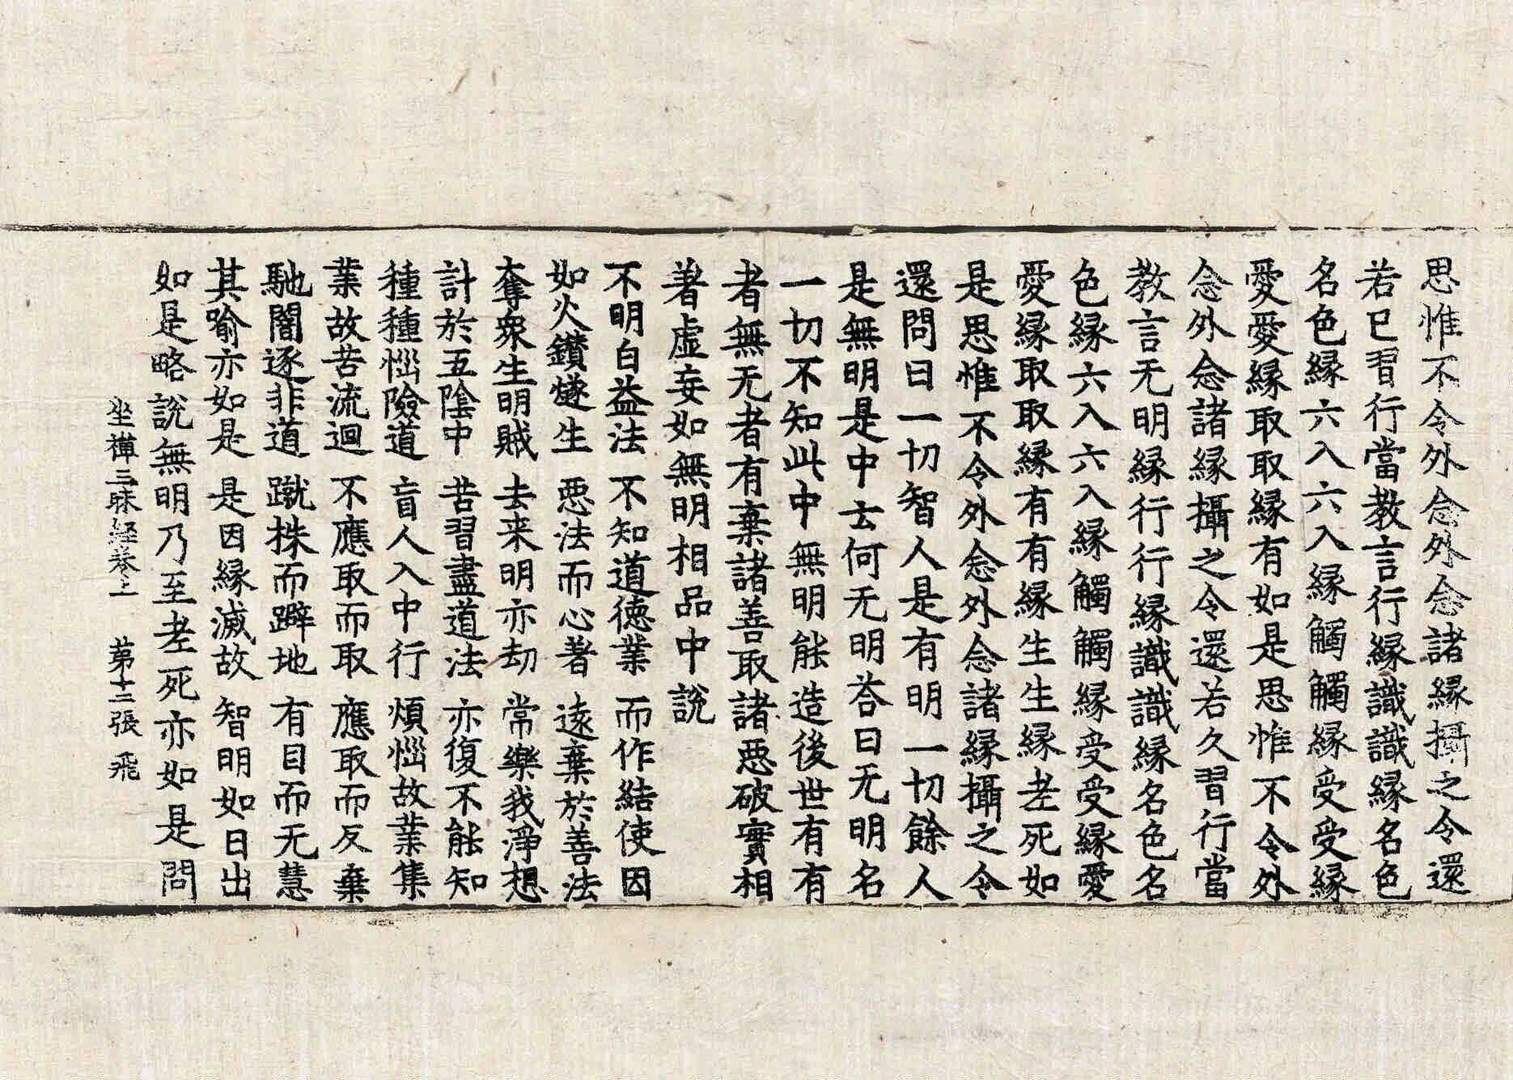 思惟不令外念外念諸緣攝之令還
若已習行當教言行緣識識緣名色
名色緣六入六入緣觸觸緣受受緣
愛愛緣取取緣有如是思惟不令外
念外念諸緣攝之令還若久習行當
教言无明緣行行緣識識緣名色名
色緣六入六入緣觸觸緣受受緣愛
愛緣取取緣有有緣生生緣老死如
是思惟不令外念外念諸緣攝之令
還問曰一切智人是有明一切餘人
是無明是中云何无明荅曰无明名
一切不知此中無明能造後世有有
者無无者有棄諸善取諸惡破實相
著虛妄如無明相品中說
不明白益法 不知道德業 而作結使因
如火鑚燧生 惡法而心著 遠棄於善法
奪衆生明賊 去来明亦劫 常樂我淨想
計於五陰中 苦習盡道法 亦復不能知
種種惱險道 盲人入中行 煩惱故業集
業故苦流迴 不應取而取 應取而反棄
馳闇逐非道 蹴株而躃地 有目而无慧
其喻亦如是 是因緣滅故 智明如日出
如是略說無明乃至老死亦如是問
坐禪三昧經卷上 第十二張 飛